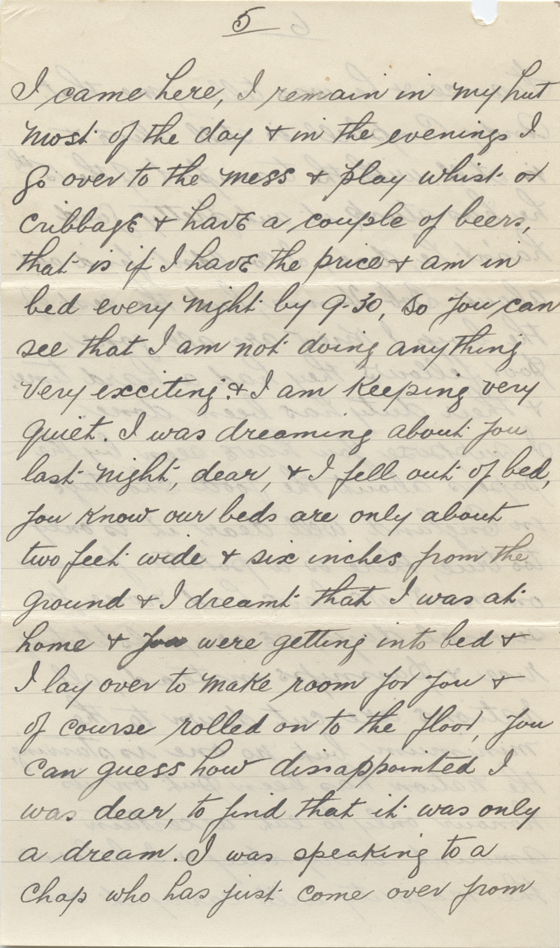 5
I came here, I remain in my hut
most of the day & in the evenings I
go over to the mess & play whist or
cribbage & have a couple of beers,
that is if I have the price & am in
bed every night by 9-30, so you can
see that I am not doing anything
very exciting & I am keeping very
quiet. I was dreaming about you
last night, dear, & I fell out of bed,
you know our beds are only about
two feet wide & six inches from the
ground & I dreamt that I was at
home & you were getting into bed &
I lay over to make room for you &
of course rolled on to the floor, you
can guess how dissappointed I
was dear, to find that it was only
a dream. I was speaking to a
chap who has just come over from